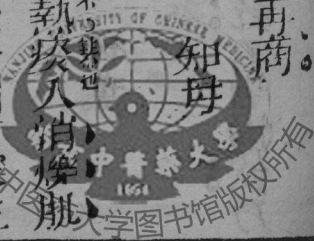 再商
知母
不㕮甚也
熱痰入消爍肌
NANJING UNIVERSITY OF CHINESE MEDICINE
中醫藥大學
1954
中医药大学图书馆版权所有